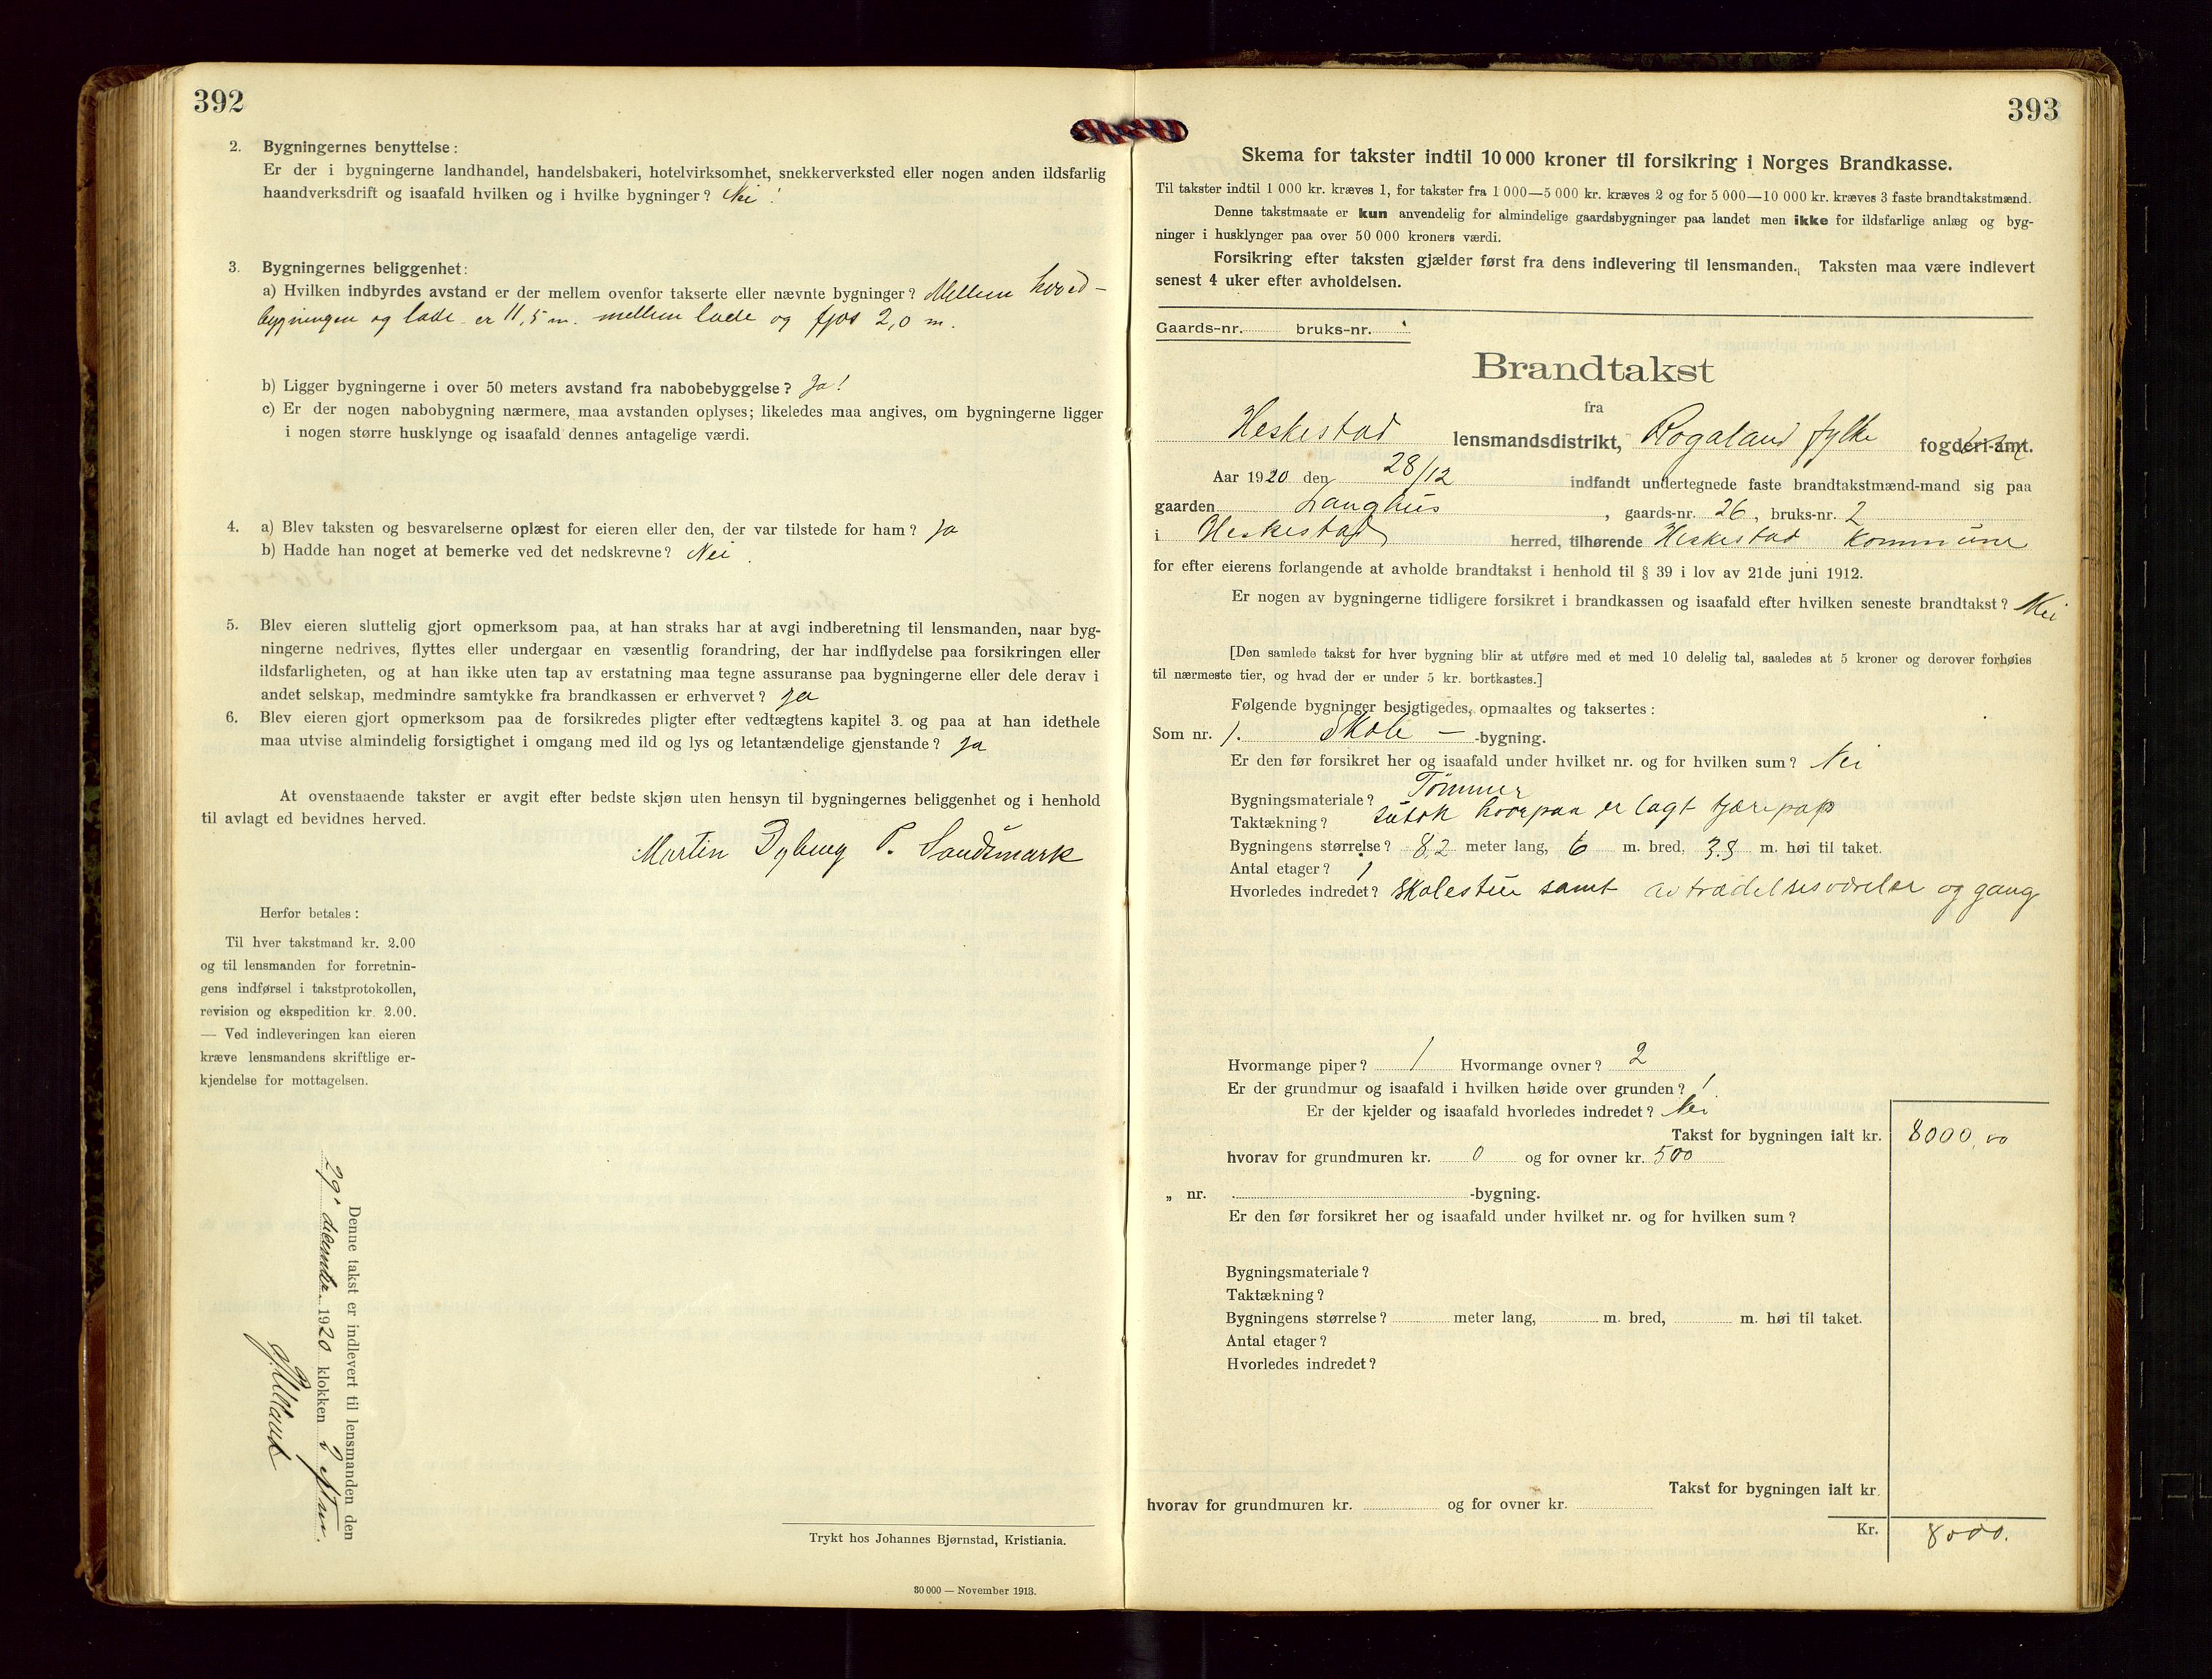 392
2. Bygningernes benyttelse:
Er der i bygningerne landhandel, handelsbakeri, hotelvirksomhet, snekkerverksted eller nogen anden ildsfarlig
haandverksdrift og isaafald hvilken og i hvilke bygninger? Nei!
3. Bygningernes beliggenhet:
a) Hvilken indbyrdes avstand er der mellem ovenfor takserte eller nævnte bygninger? Mellem hoved-
bygningen og lade er 11,5 m. mellem lade og fjøs 2,0 m.
b) Ligger bygningerne i over 50 meters avstand fra nabobebyggelse? Ja!
c) Er der nogen nabobygning nærmere, maa avstanden oplyses; likeledes maa angives, om bygningerne ligger
i nogen større husklynge og isaafald dennes antagelige værdi.
4. a) Blev taksten og besvarelserne oplæst for eieren eller den, der var tilstede for ham? Ja
b) Hadde han noget at bemerke ved det nedskrevne? Nei.
5. Blev eieren sluttelig gjort opmerksom paa, at han straks har at avgi indberetning til lensmanden, naar byg-
ningerne nedrives, flyttes eller undergaar en væsentlig forandring, der har indflydelse paa forsikringen eller
ildsfarligheten, og at han ikke uten tap av erstatning maa tegne assuranse paa bygningerne eller dele derav i
andet selskap, medmindre samtykke fra brandkassen er erhvervet? Ja
6. Blev eieren gjort opmerksom paa de forsikredes pligter efter vedtægtens kapitel 3 og paa at han idethele
maa utvise almindelig forsigtighet i omgang med ild og lys og letantændelige gjenstande? Ja
At ovenstaaende takster er avgit efter bedste skjøn uten hensyn til bygningernes beliggenhet og i henhold
til avlagt ed bevidnes herved.
Martin Dybing P. Sandsmark
Herfor betales:
Til hver takstmand kr. 2.00
og til lensmanden for forretnin-
gens indførsel i takstprotokollen,
revision og ekspedition kr. 2.00.
— Ved indleveringen kan eieren
kræve lensmandens skriftlige er-
kjendelse for mottagelsen.
Denne takst er indlevert til lensmanden den
29' december 1920 klokken 2
Trykt hos Johannes Bjørnstad, Kristiania.
30 000 — November 1913.
393
Skema for takster indtil 10 000 kroner til forsikring i Norges Brandkasse.
Til takster indtil 1 000 kr. kræves 1, for takster fra 1 000—5 000 kr. kræves 2 og for 5 000—10 000 kr. kræves 3 faste brandtakstmænd.
Denne takstmaate er kun anvendelig for almindelige gaardsbygninger paa landet men ikke for ildsfarlige anlæg og byg-
ninger i husklynger paa over 50 000 kroners værdi.
Forsikring efter taksten gjælder først fra dens indlevering til lensmanden. Taksten maa være indlevert
senest 4 uker efter avholdelsen.
Gaards-nr. bruks-nr.
Brandtakst
fra
Heskestad lensmandsdistrikt, Rogaland fylke fogderi-amt.
Aar 1920 den 28/12 indfandt undertegnede faste brandtakstmænd-mand sig paa
gaarden Langhus, gaards-nr. 26, bruks-nr. 2
i Heskestad herred, tilhørende Heskestad kommune
for efter eierens forlangende at avholde brandtakst i henhold til § 39 i lov av 21de juni 1912.
Er nogen av bygningerne tidligere forsikret i brandkassen og isaafald efter hvilken seneste brandtakst? Nei
[Den samlede takst for hver bygning blir at utføre med et med 10 delelig tal, saaledes at 5 kroner og derover forhøies
til nærmeste tier, og hvad der er under 5 kr. bortkastes.]
Følgende bygninger besigtigedes, opmaaltes og taksertes:
Som nr. 1. Skole - -bygning.
Er den før forsikret her og isaafald under hvilket nr. og for hvilken sum? Nei
Bygningsmateriale? Tømmer
Taktækning? sutak hvorpaa er lagt tjærepap
Bygningens størrelse? 8.2 meter lang, 6 m. bred, 3.8 m. høi til taket.
Antal etager? 1
Hvorledes indredet? Skolestue samt avtrædelsesværelse og gang
Hvormange piper? 1 Hvormange ovner? 2
Er der grundmur og isaafald i hvilken høide over grunden? 1
Er der kjelder og isaafald hvorledes indredet? Nei
Takst for bygningen ialt kr. 8000,00
hvorav for grundmuren kr. 0 og for ovner kr. 500
„ nr. -bygning.
Er den før forsikret her og isaafald under hvilket nr. og for hvilken sum?
Bygningsmateriale?
Taktækning?
Bygningens størrelse? meter lang, m. bred, m. høi til taket.
Antal etager?
Hvorledes indredet?
Takst for bygningen ialt kr.
hvorav for grundmuren kr. og for ovner kr.
Kr. 8000.